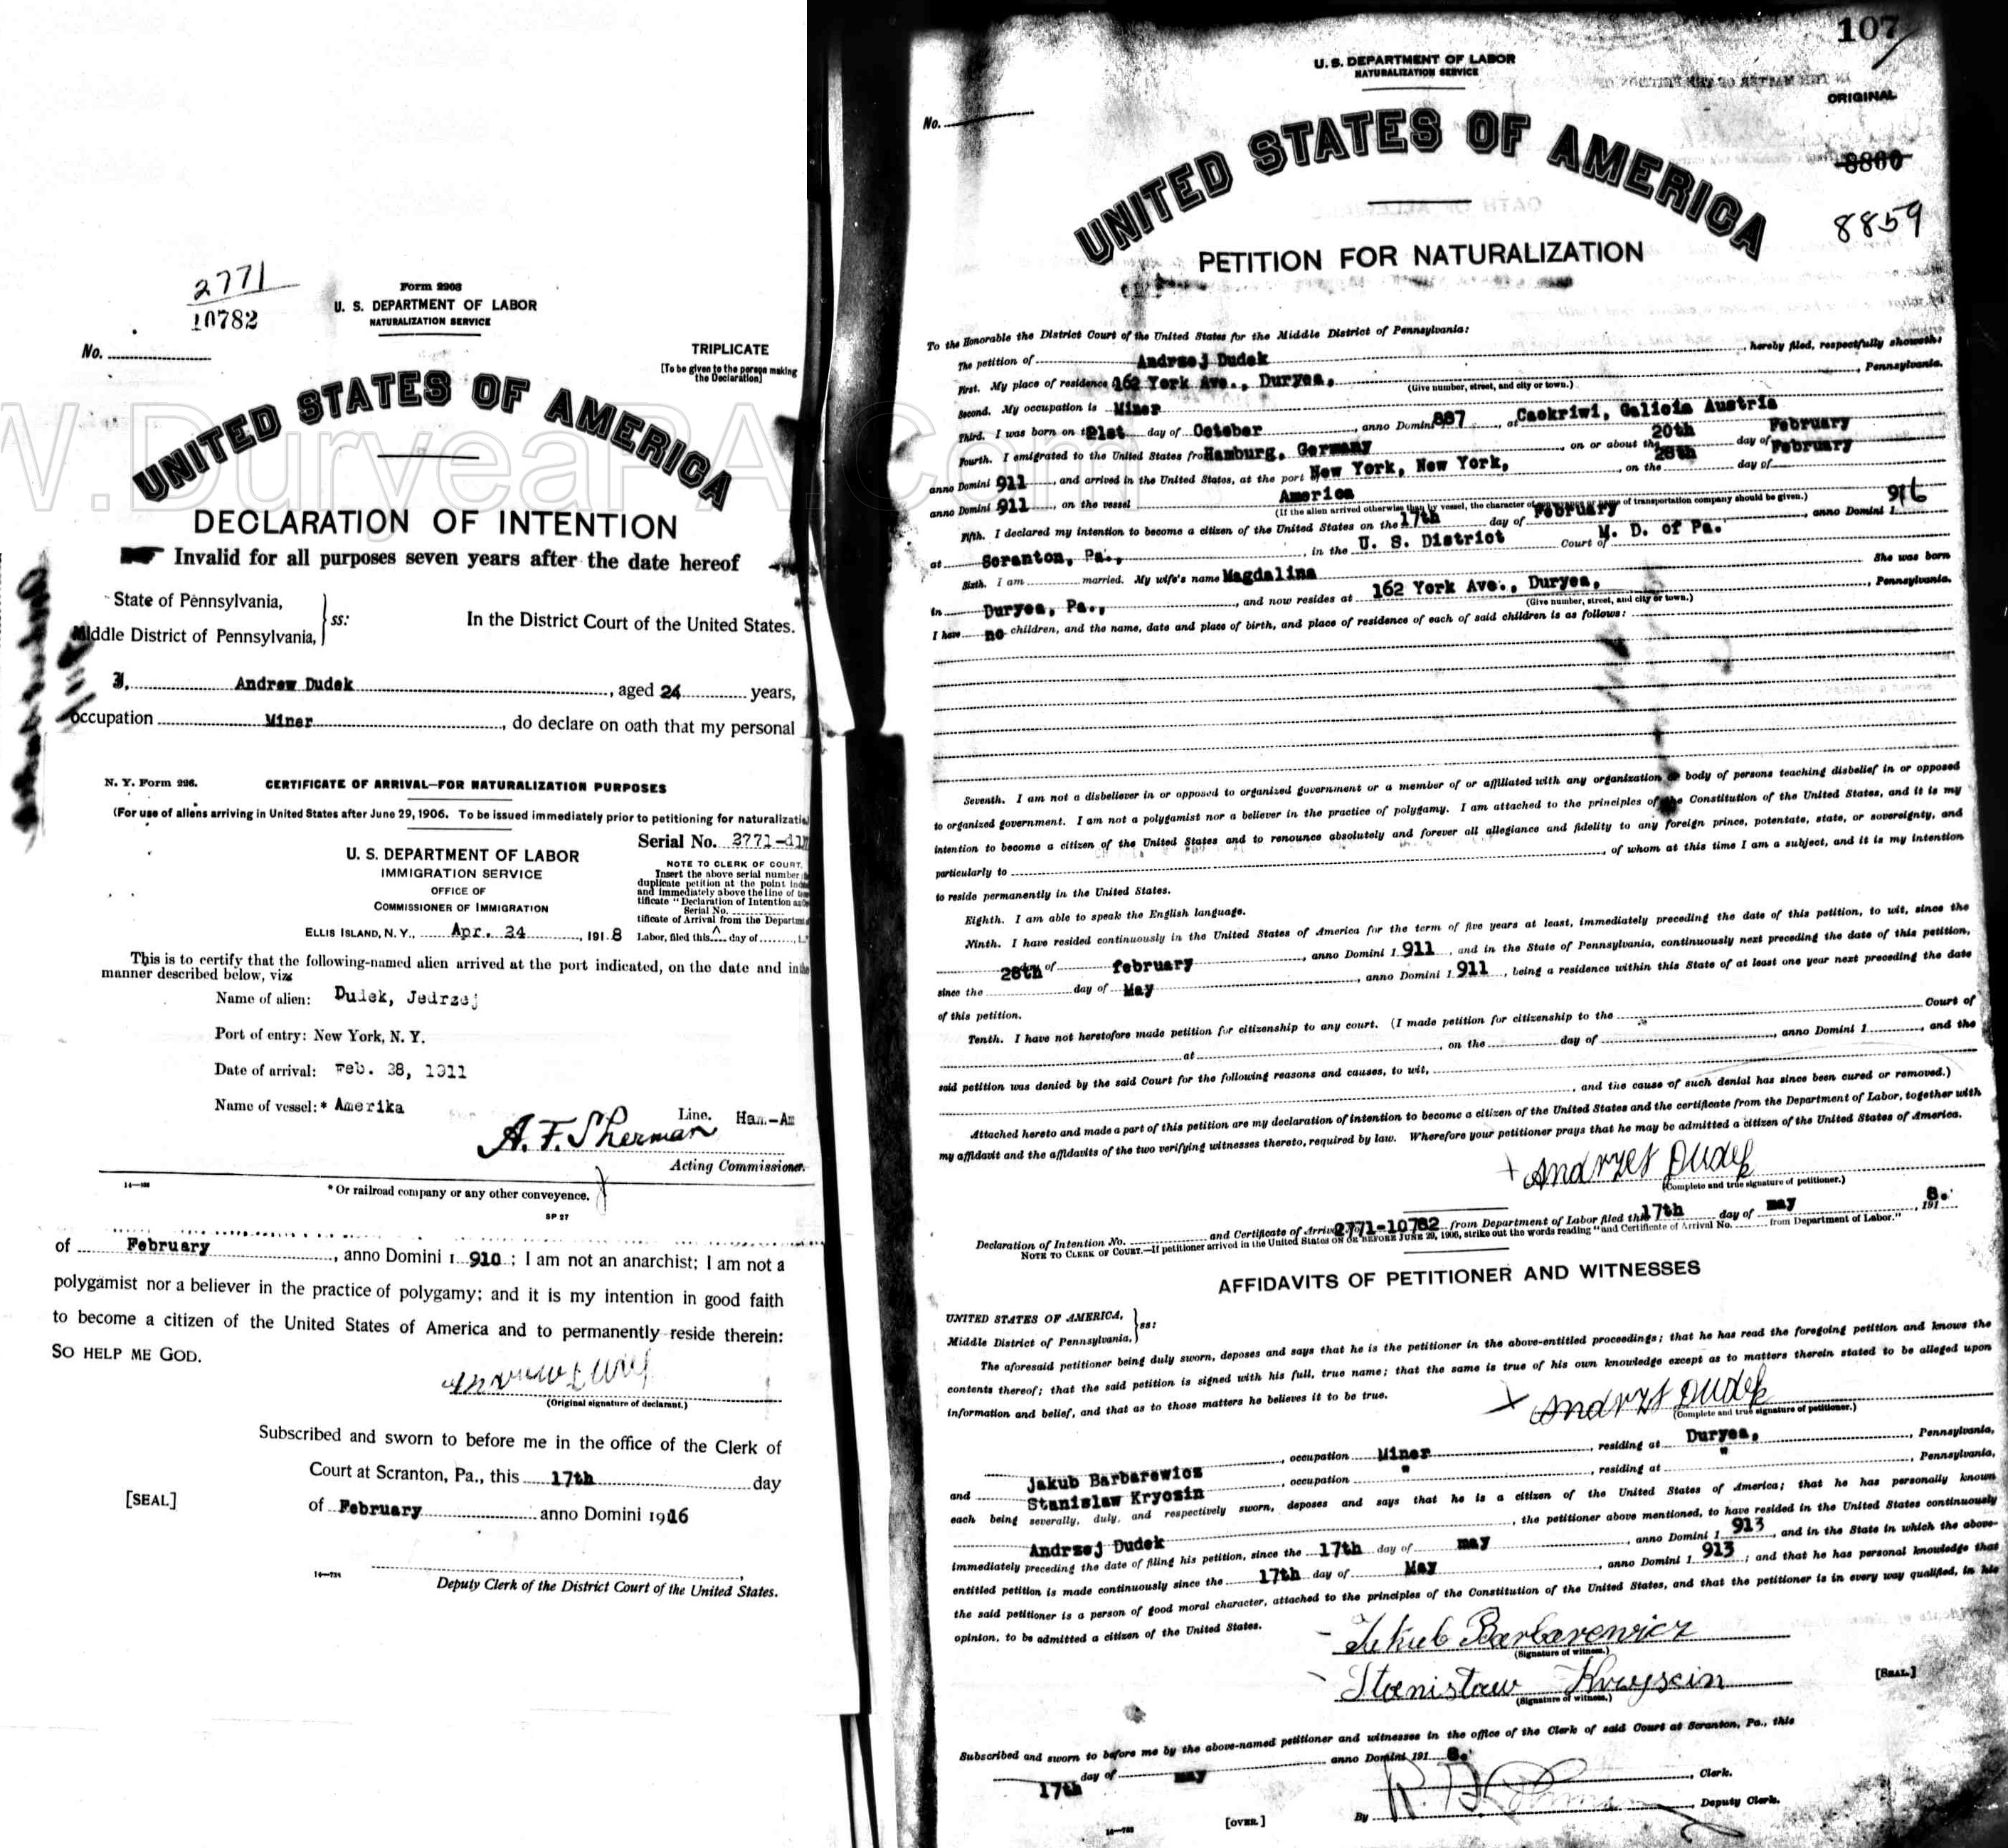 2771
10782
Form 2203
U. S. DEPARTMENT OF LABOR
NATURALIZATION SERVICE
No.
TRIPLICATE
[To be given to the person making the Declaration]
UNITED STATES OF AMERICA
W.DuryeaPA.Com
DECLARATION OF INTENTION
Invalid for all purposes seven years after the date hereof
State of Pennsylvania,
Middle District of Pennsylvania, ss: In the District Court of the United States.
I, Andrew Dudek, aged 24 years,
occupation Miner, do declare on oath that my personal
N. Y. Form 226. CERTIFICATE OF ARRIVAL—FOR NATURALIZATION PURPOSES
(For use of aliens arriving in United States after June 29, 1906. To be issued immediately prior to petitioning for
Serial No.
U. S. DEPARTMENT OF LABOR
IMMIGRATION SERVICE
OFFICE OF
COMMISSIONER OF IMMIGRATION
NOTE TO CLERK OF COURT.
Insert the above serial number
duplicate petition at the point
and immediately above the line of
tificate "Declaration of Intention
Serial No.
tificate of Arrival from the
Labor, filed this day of
ELLIS ISLAND, N. Y., Apr. 24, 1918
This is to certify that the following-named alien arrived at the port indicated, on the date and in
manner described below, viz
Name of alien: Dudek, Jedrzej
Port of entry: New York, N. Y.
Date of arrival: Feb. 28, 1911
Name of vessel:* Amerika Line. Han.-Am
A. F. Sherman
Acting Commissioner.
* Or railroad company or any other conveyence.
SP 27
of February, anno Domini 1 910; I am not an anarchist; I am not a
polygamist nor a believer in the practice of polygamy; and it is my intention in good faith
to become a citizen of the United States of America and to permanently reside therein:
SO HELP ME GOD.
(Original signature of declarant.)
Subscribed and sworn to before me in the office of the Clerk of
Court at Scranton, Pa., this 17th day
[SEAL] of February anno Domini 1916
Deputy Clerk of the District Court of the United States.
107
U. S. DEPARTMENT OF LABOR
NATURALIZATION SERVICE
ORIGINAL
No.
UNITED STATES OF AMERICA
8860
8859
PETITION FOR NATURALIZATION
To the Honorable the District Court of the United States for the Middle District of Pennsylvania:
The petition of Andrzej Dudek, hereby filed, respectfully showeth:
First. My place of residence 162 York Ave., Duryea, Pennsylvania.
(Give number, street, and city or town.)
Second. My occupation is Miner
Third. I was born on the 21st day of October, anno Domini 887, at Czekriwi, Galicia Austria
Fourth. I emigrated to the United States from Hamburg, Germany, on or about the 20th day of February
anno Domini 911, and arrived in the United States, at the port New York, New York, on the 28th day of February
anno Domini 911, on the vessel America
(If the alien arrived otherwise than by vessel, the character of conveyance or name of transportation company should be given.)
Fifth. I declared my intention to become a citizen of the United States on the 17th day of February, anno Domini 1 916
at Scranton, Pa., in the U. S. District Court of M. D. of Pa.
Sixth. I am married. My wife's name Magdalina She was born
in Duryea, Pa., and now resides at 162 York Ave., Duryea, Pennsylvania.
(Give number, street, and city or town.)
I have no children, and the name, date and place of birth, and place of residence of each of said children is as follows:
Seventh. I am not a disbeliever in or opposed to organized government or a member of or affiliated with any organization or body of persons teaching disbelief in or opposed
to organized government. I am not a polygamist nor a believer in the practice of polygamy. I am attached to the principles of the Constitution of the United States, and it is my
intention to become a citizen of the United States and to renounce absolutely and forever all allegiance and fidelity to any foreign prince, potentate, state, or sovereignty, and
particularly to, of whom at this time I am a subject, and it is my intention
to reside permanently in the United States.
Eighth. I am able to speak the English language.
Ninth. I have resided continuously in the United States of America for the term of five years at least, immediately preceding the date of this petition, to wit, since the
28th of february, anno Domini 1 911, and in the State of Pennsylvania, continuously next preceding the date of this petition,
since the day of May, anno Domini 1 911, being a residence within this State of at least one year next preceding the date
of this petition.
Tenth. I have not heretofore made petition for citizenship to any court. (I made petition for citizenship to the Court of
at, on the day of, anno Domini 1, and the
said petition was denied by the said Court for the following reasons and causes, to wit,
, and the cause of such denial has since been cured or removed.)
Attached hereto and made a part of this petition are my declaration of intention to become a citizen of the United States and the certificate from the Department of Labor, together with
my affidavit and the affidavits of the two verifying witnesses thereto, required by law. Wherefore your petitioner prays that he may be admitted a citizen of the United States of America.
Andrzej Dudek
(Complete and true signature of petitioner.)
Declaration of Intention No. and Certificate of Arrival 2771-10782 from Department of Labor filed this 17th day of may, 191 8.
NOTE TO CLERK OF COURT.—If petitioner arrived in the United States ON OR BEFORE JUNE 29, 1906, strike out the words reading "and Certificate of Arrival No. from Department of Labor."
AFFIDAVITS OF PETITIONER AND WITNESSES
UNITED STATES OF AMERICA,
Middle District of Pennsylvania, ss:
The aforesaid petitioner being duly sworn, deposes and says that he is the petitioner in the above-entitled proceedings; that he has read the foregoing petition and knows the
contents thereof; that the said petition is signed with his full, true name; that the same is true of his own knowledge except as to matters therein stated to be alleged upon
information and belief, and that as to those matters he believes it to be true.
Andrzej Dudek
(Complete and true signature of petitioner.)
Jakub Barbarewicz, occupation Miner, residing at Duryea, Pennsylvania,
and Stanislaw Kryczin, occupation ", residing at ", Pennsylvania,
each being severally, duly, and respectively sworn, deposes and says that he is a citizen of the United States of America; that he has personally known
Andrzej Dudek, the petitioner above mentioned, to have resided in the United States continuously
immediately preceding the date of filing his petition, since the 17th day of may, anno Domini 1 913, and in the State in which the above-
entitled petition is made continuously since the 17th day of May, anno Domini 1 913; and that he has personal knowledge that
the said petitioner is a person of good moral character, attached to the principles of the Constitution of the United States, and that the petitioner is in every way qualified, in his
opinion, to be admitted a citizen of the United States.
Jakub Barbarewicz
(Signature of witness.)
Stanislaw Kryscin
(Signature of witness.)
[SEAL]
Subscribed and sworn to before me by the above-named petitioner and witnesses in the office of the Clerk of said Court at Scranton, Pa., this
17th day of may anno Domini 191 8.
, Clerk.
[OVER.] By, Deputy Clerk.